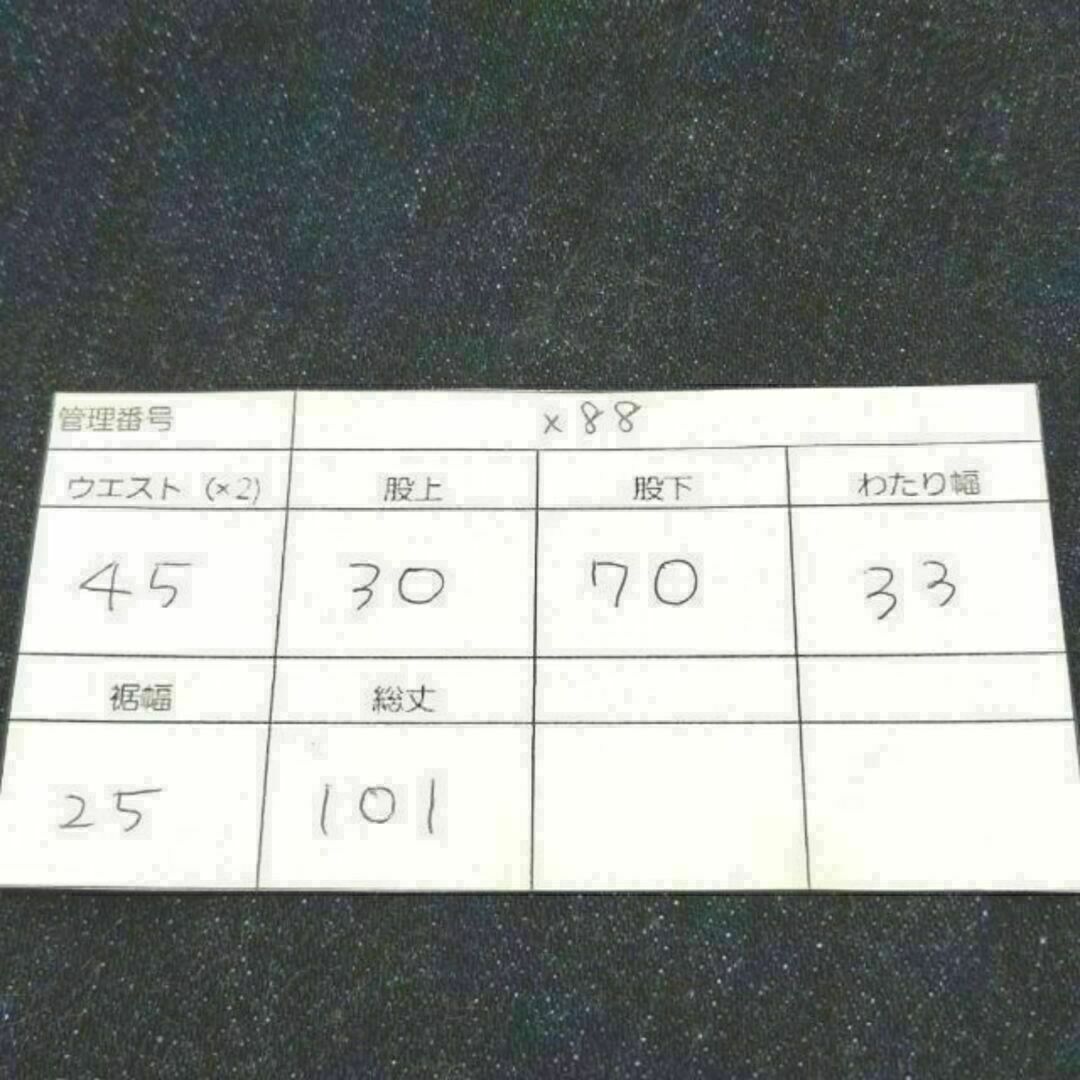 管理番号 x88
ウエスト (×2) 股上 股下 わたり幅
45 30 70 33
裾幅 総丈
25 101